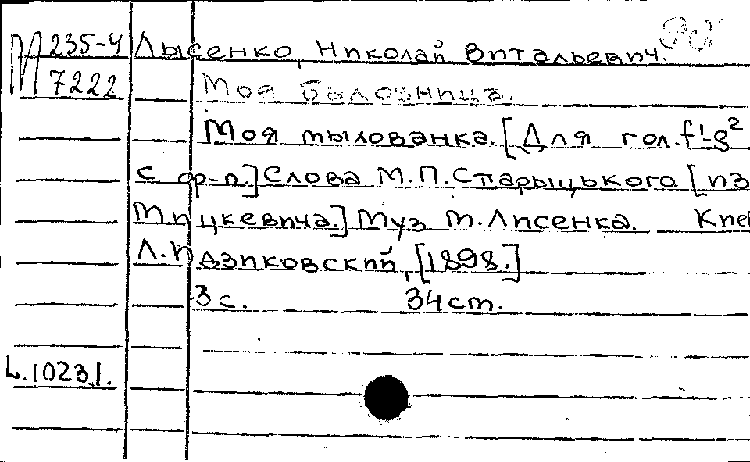 М 235-4 Лысенко, Николай Витальевич.
7222 Моя баловница.
Моя мылованка. [Для гол. f¹-g²
с ф-п.] Слова М.П. Старыцького [из
Мицкевича.] Муз М. Лисенка. Киев
Л. Идзиковский, [1898.]
3 с. 34 cm.
L.10231.